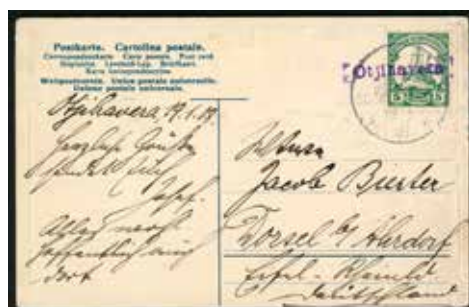 Postkarte. Cartolina postale.
Correspondenzkarte Carte postale. Post card
Weltpostverein. Union postale universelle.
Unione postale universale.
Otjihavera
5
Otjihavera, 19.1.09.
Herzliche Grüße
sendet Euch
Josef.
Alles wohl
hoffentlich auch
dort
Jacob Bierter
Dorsel b/ Ahrdorf
Eifel - Rheinld
Deutschland